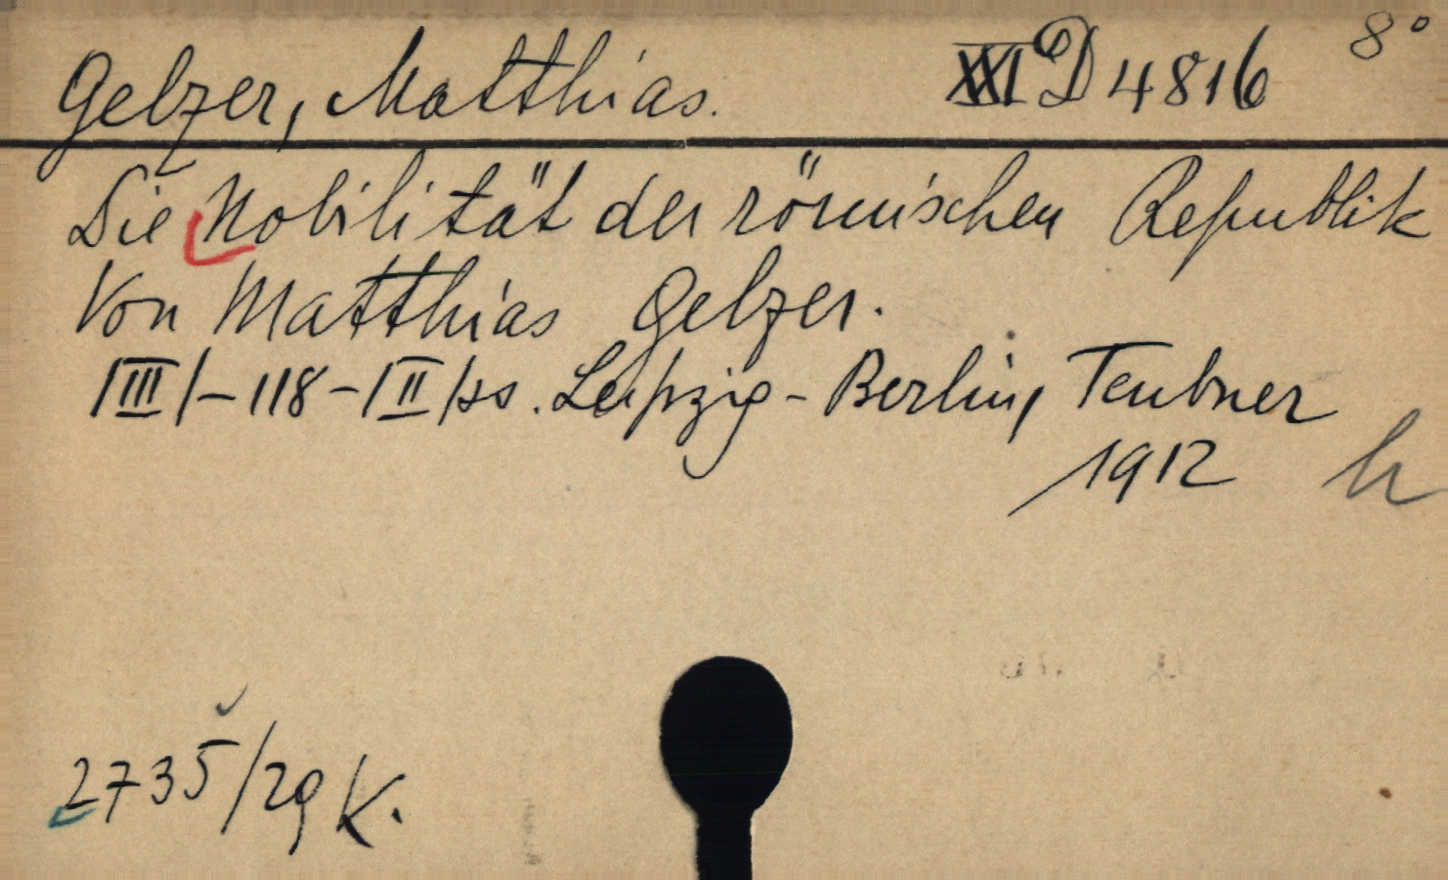 Gelzer, Matthias. XXI D 4816 8°
Die Nobilität der römischen Republik
Von Matthias Gelzer.
/III/-118-/II/ss. Leipzig-Berlin, Teubner
1912 h
2735/29 K.